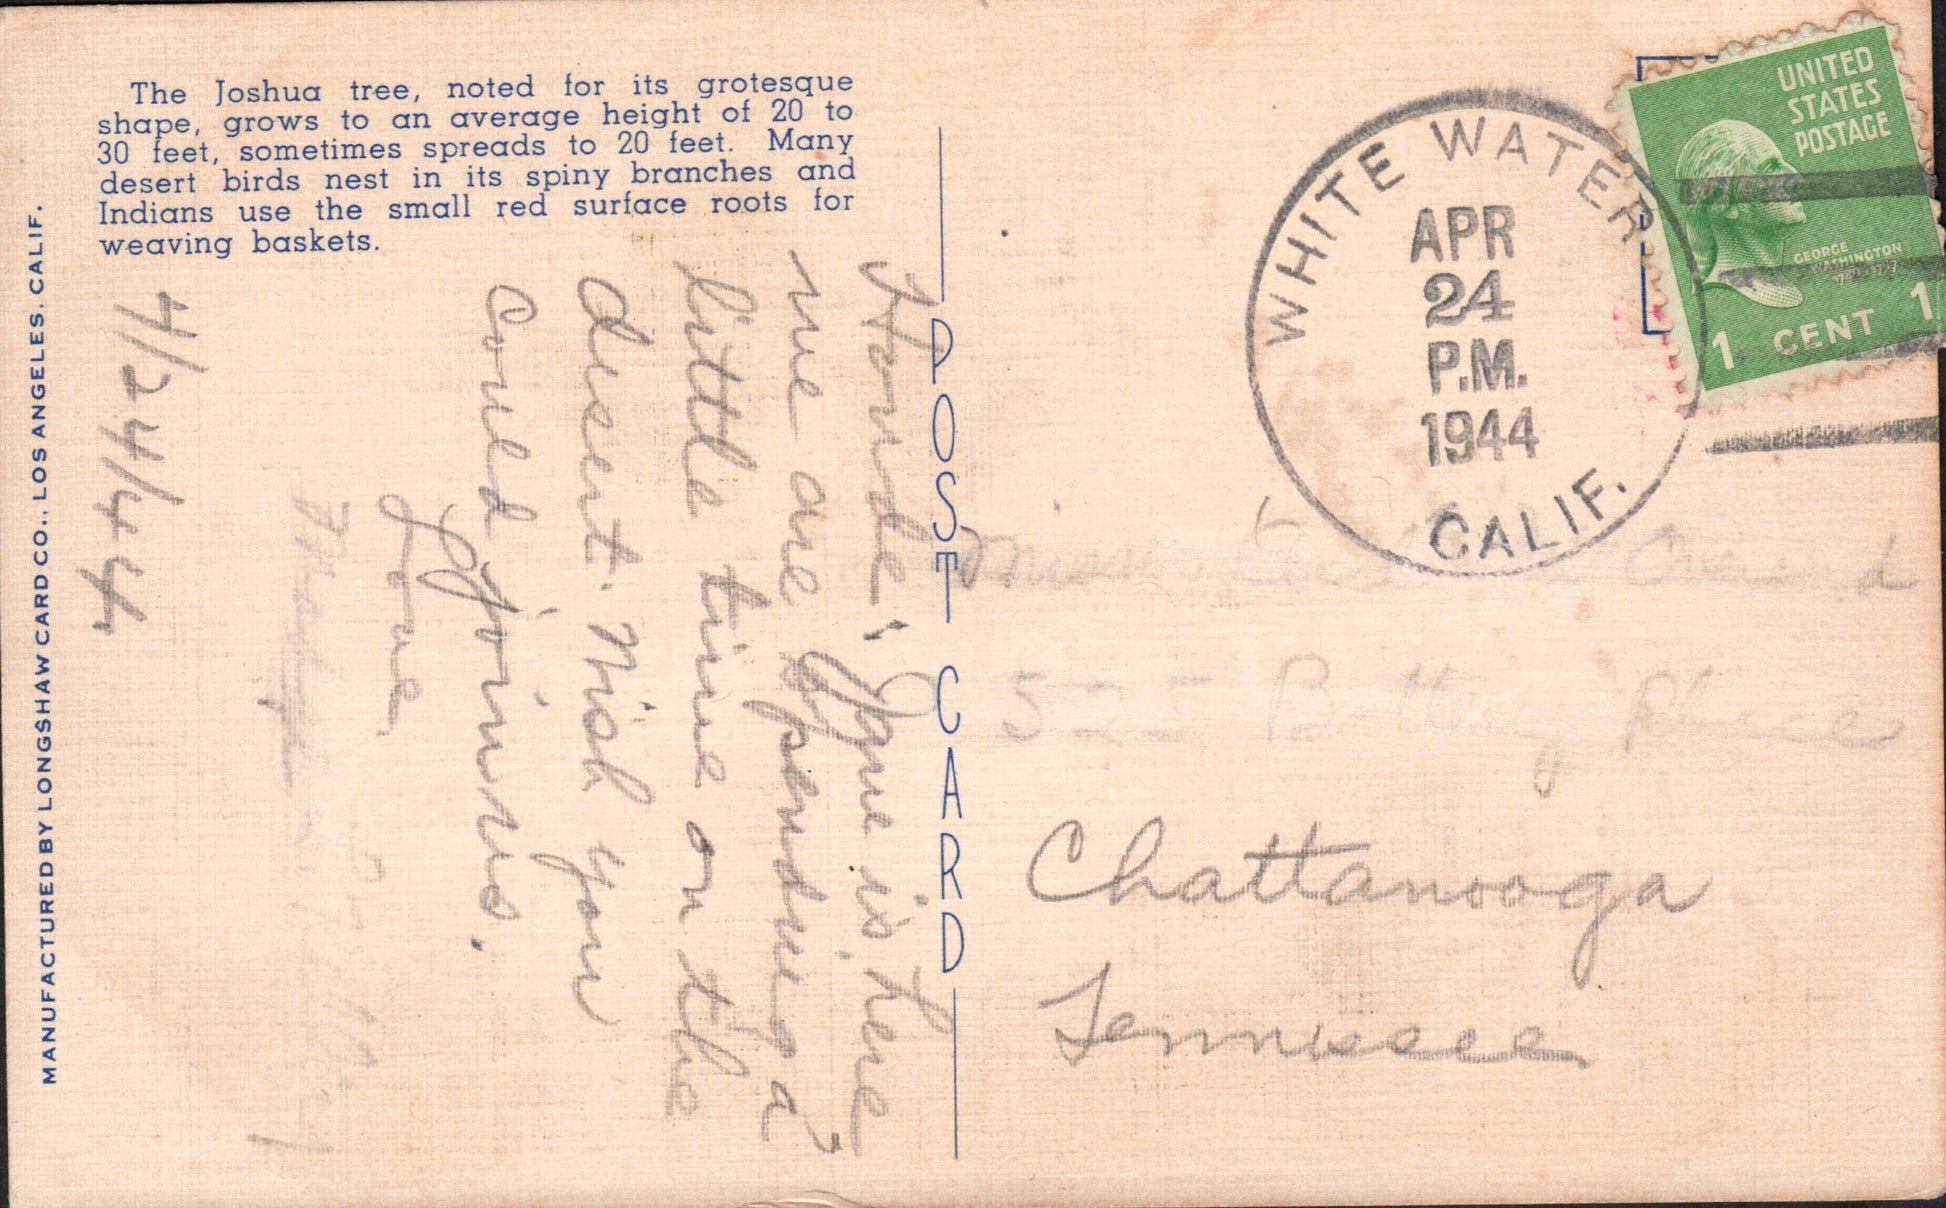 The Joshua tree, noted for its grotesque
shape, grows to an average height of 20 to
30 feet, sometimes spreads to 20 feet. Many
desert birds nest in its spiny branches and
Indians use the small red surface roots for
weaving baskets.
MANUFACTURED BY LONGSHAW CARD CO., LOS ANGELES, CALIF.
POST CARD
WHITE WATER
APR
24
P.M.
1944
CALIF.
UNITED
STATES
POSTAGE
GEORGE
WASHINGTON
1 CENT 1
4/24/44
is here
we are spending a
little time on the
desert. Wish you
could join us.
Love
Miss
Place
Chattanooga
Tennessee